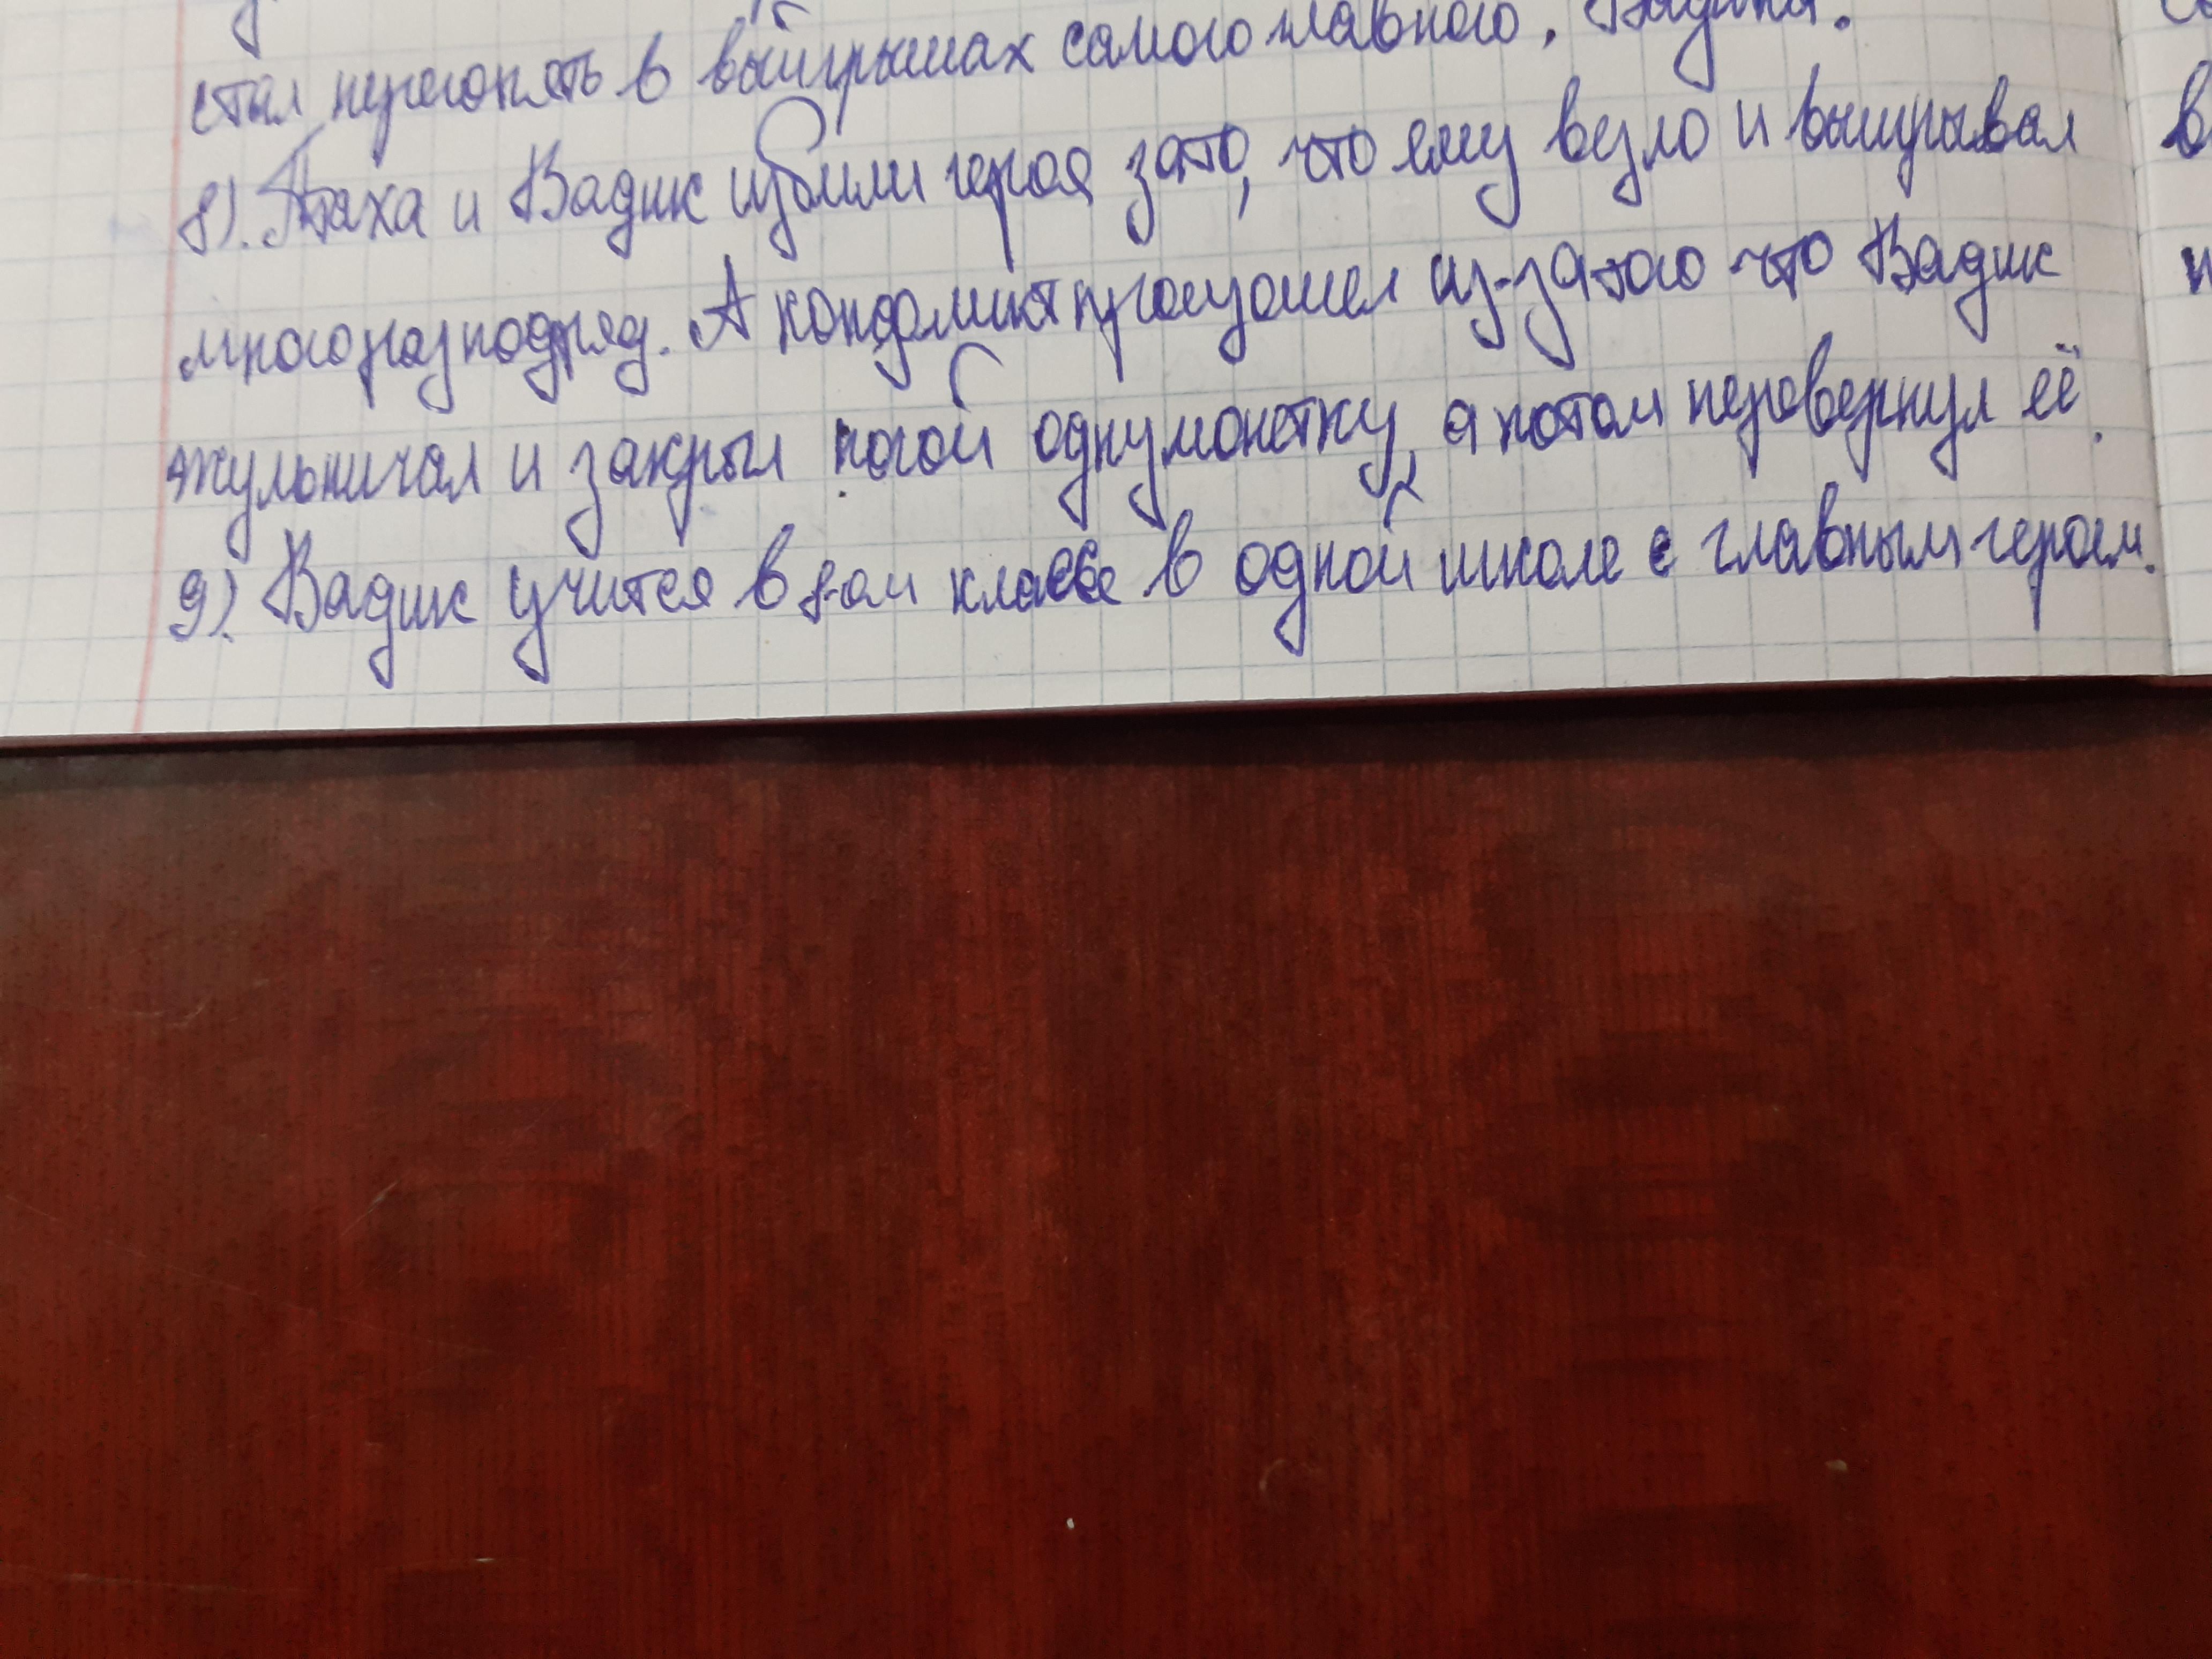 стал перегонять в выйгрышах самого главного, Вадика.
8). Птаха и Вадик избили героя за то, что ему везло и выигрывал
много раз подряд. А конфликт произошел из-за того что Вадик
жульничал и закрыл ногой одну монетку, а потом перевернул её.
9). Вадик учится в 7-ом классе в одной школе с главным героем.
в